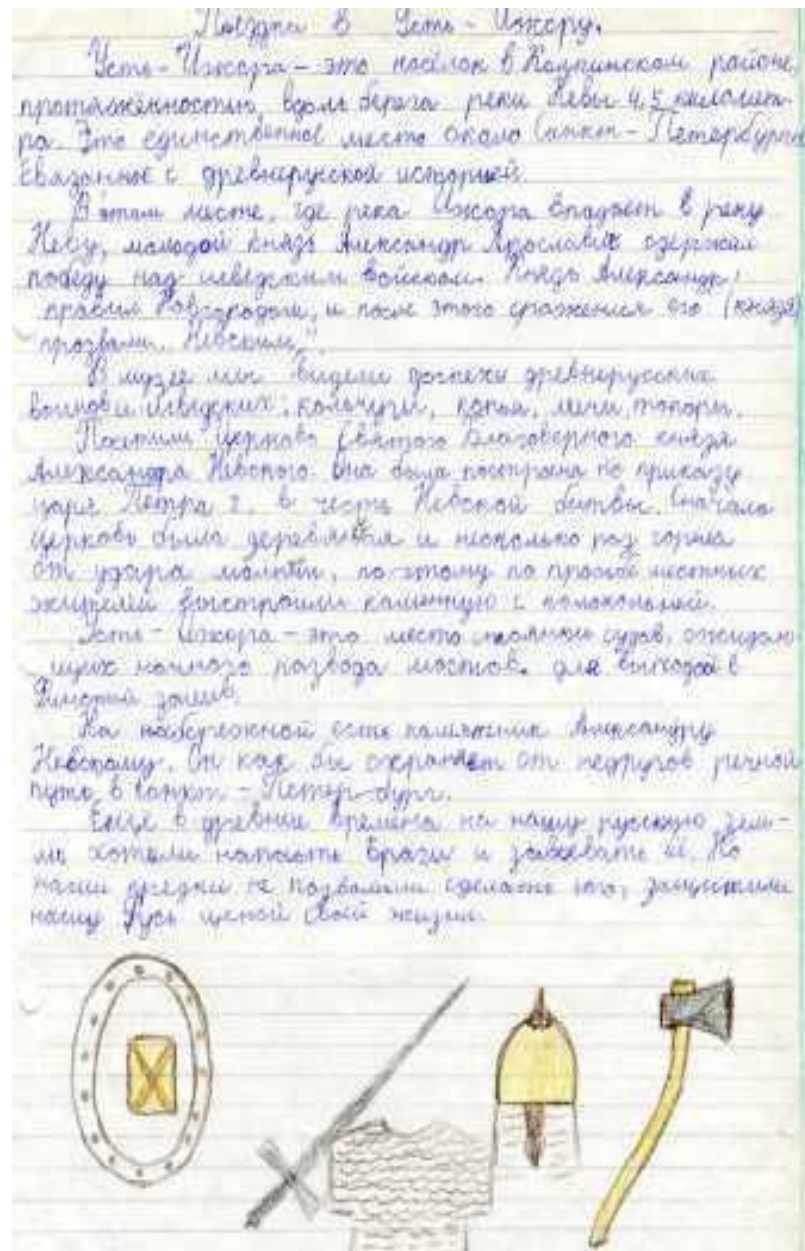 Поездка в Усть-Ижору.
Усть-Ижора - это посёлок в Колпинском районе,
протяжённостью, вдоль берега реки Невы 4,5 километ-
ра. Это единственное место около Санкт-Петербурга
связанное с древнерусской историей.
В этом месте, где река Ижора впадает в реку
Неву, молодой князь Александр Ярославич одержал
победу над шведским войском. Князь Александр
правил Новгородом, и после этого сражения его (князя)
прозвали „Невским".
В музее мы видели доспехи древнерусских
воинов и шведских: кольчуги, копья, мечи, топоры.
Посетили церковь Святого Благоверного князя
Александра Невского. Она была построена по приказу
царя Петра I, в честь Невской битвы. Сначала
церковь была деревяная и несколько раз горела
от удара молнии, по-этому по просьбе местных
жителей выстроили каменную с колокольней.
Усть-Ижора - это место стоянки судов, ожидаю-
щих ночного развода мостов, для выхода в
Финский залив.
На набережной есть памятник Александру
Невскому. Он как бы охраняет от недругов речной
путь в Санкт-Петер-бург.
Ещё в древние времена на нашу русскую зем-
лю хотели напасть враги и завоевать её. Но
наши предки не позволили сделать это, защитили
нашу Русь ценой свой жизни.